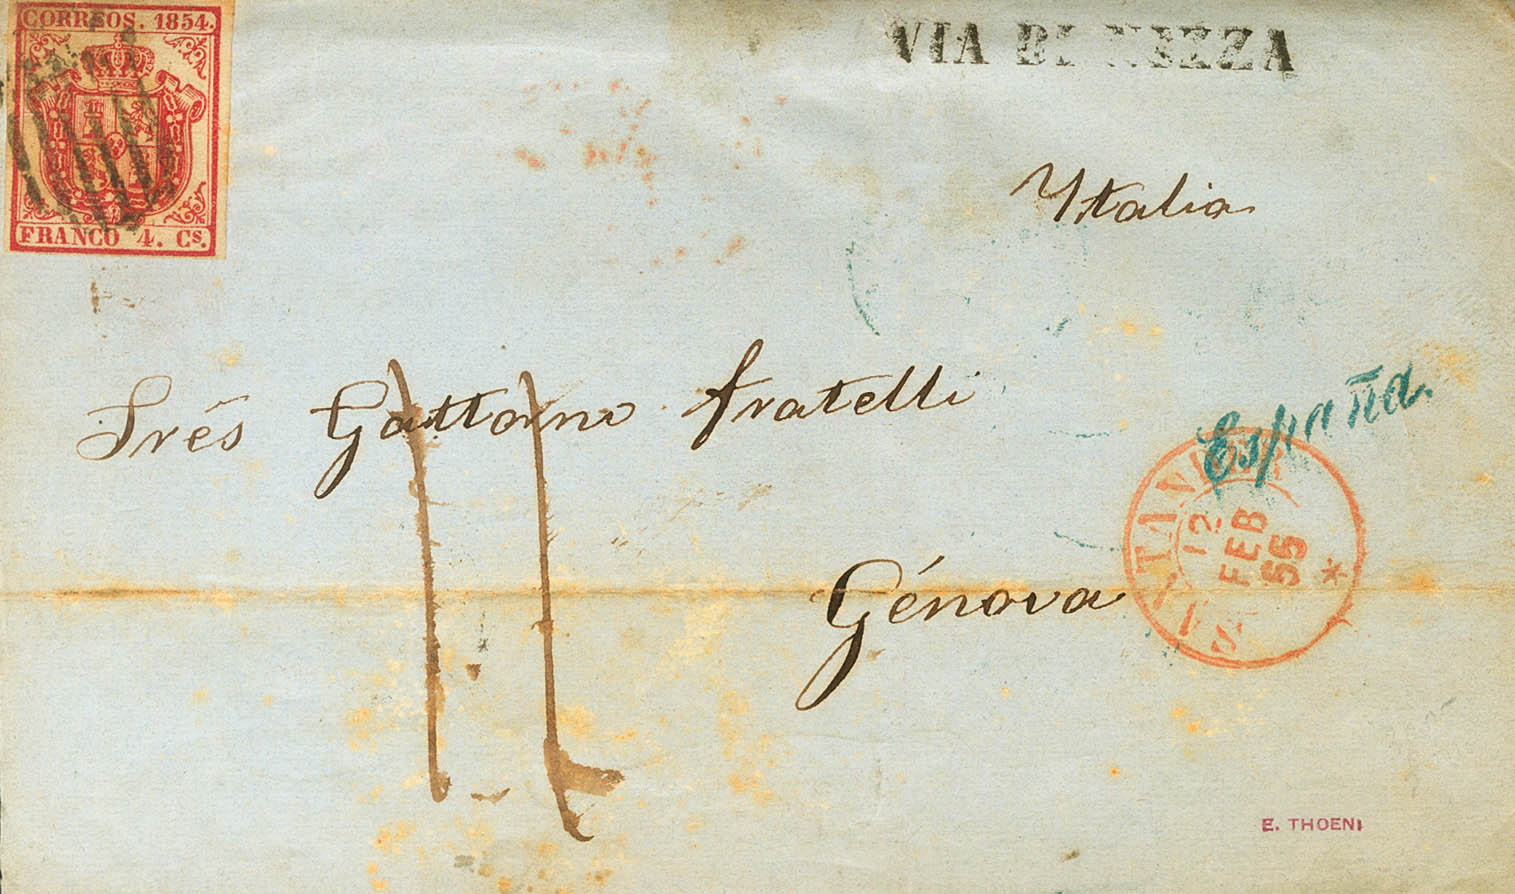 CORREOS. 1854.
FRANCO 4. Cs.
VIA DI NIZZA
Italia
Srés Gattorno fratelli
España.
Génova
SANTANDER
12
FEB
55
*
E. THOENI